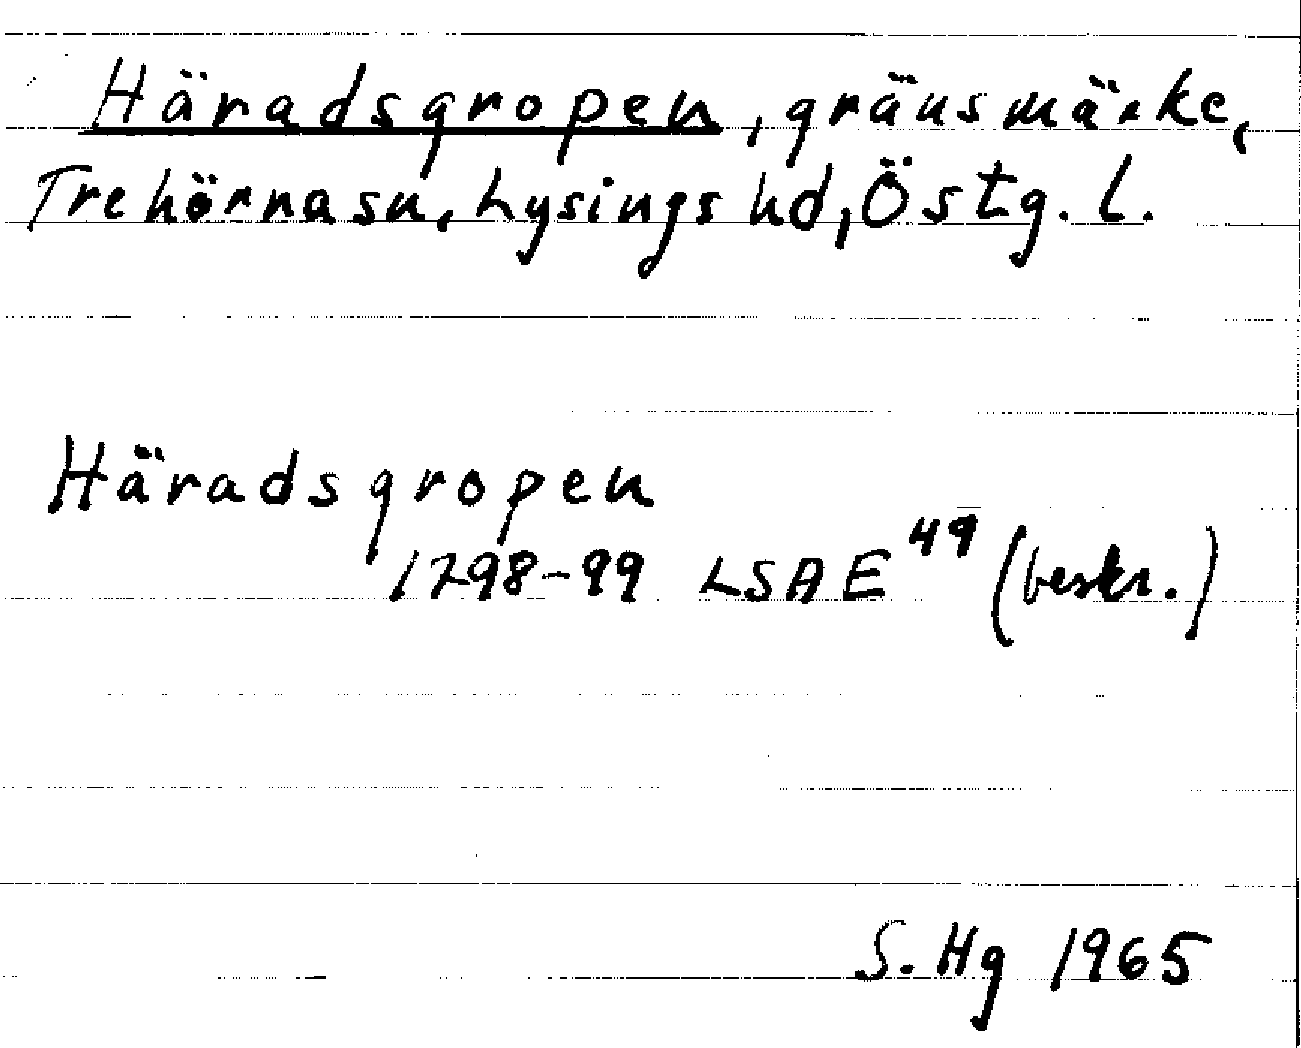 Häradsgropen, gränsmärke,
Trehörna sn, Lysings hd, Östg. l.
Häradsgropen
1798-99 LSA E 49 (beskr.)
S. Hg 1965